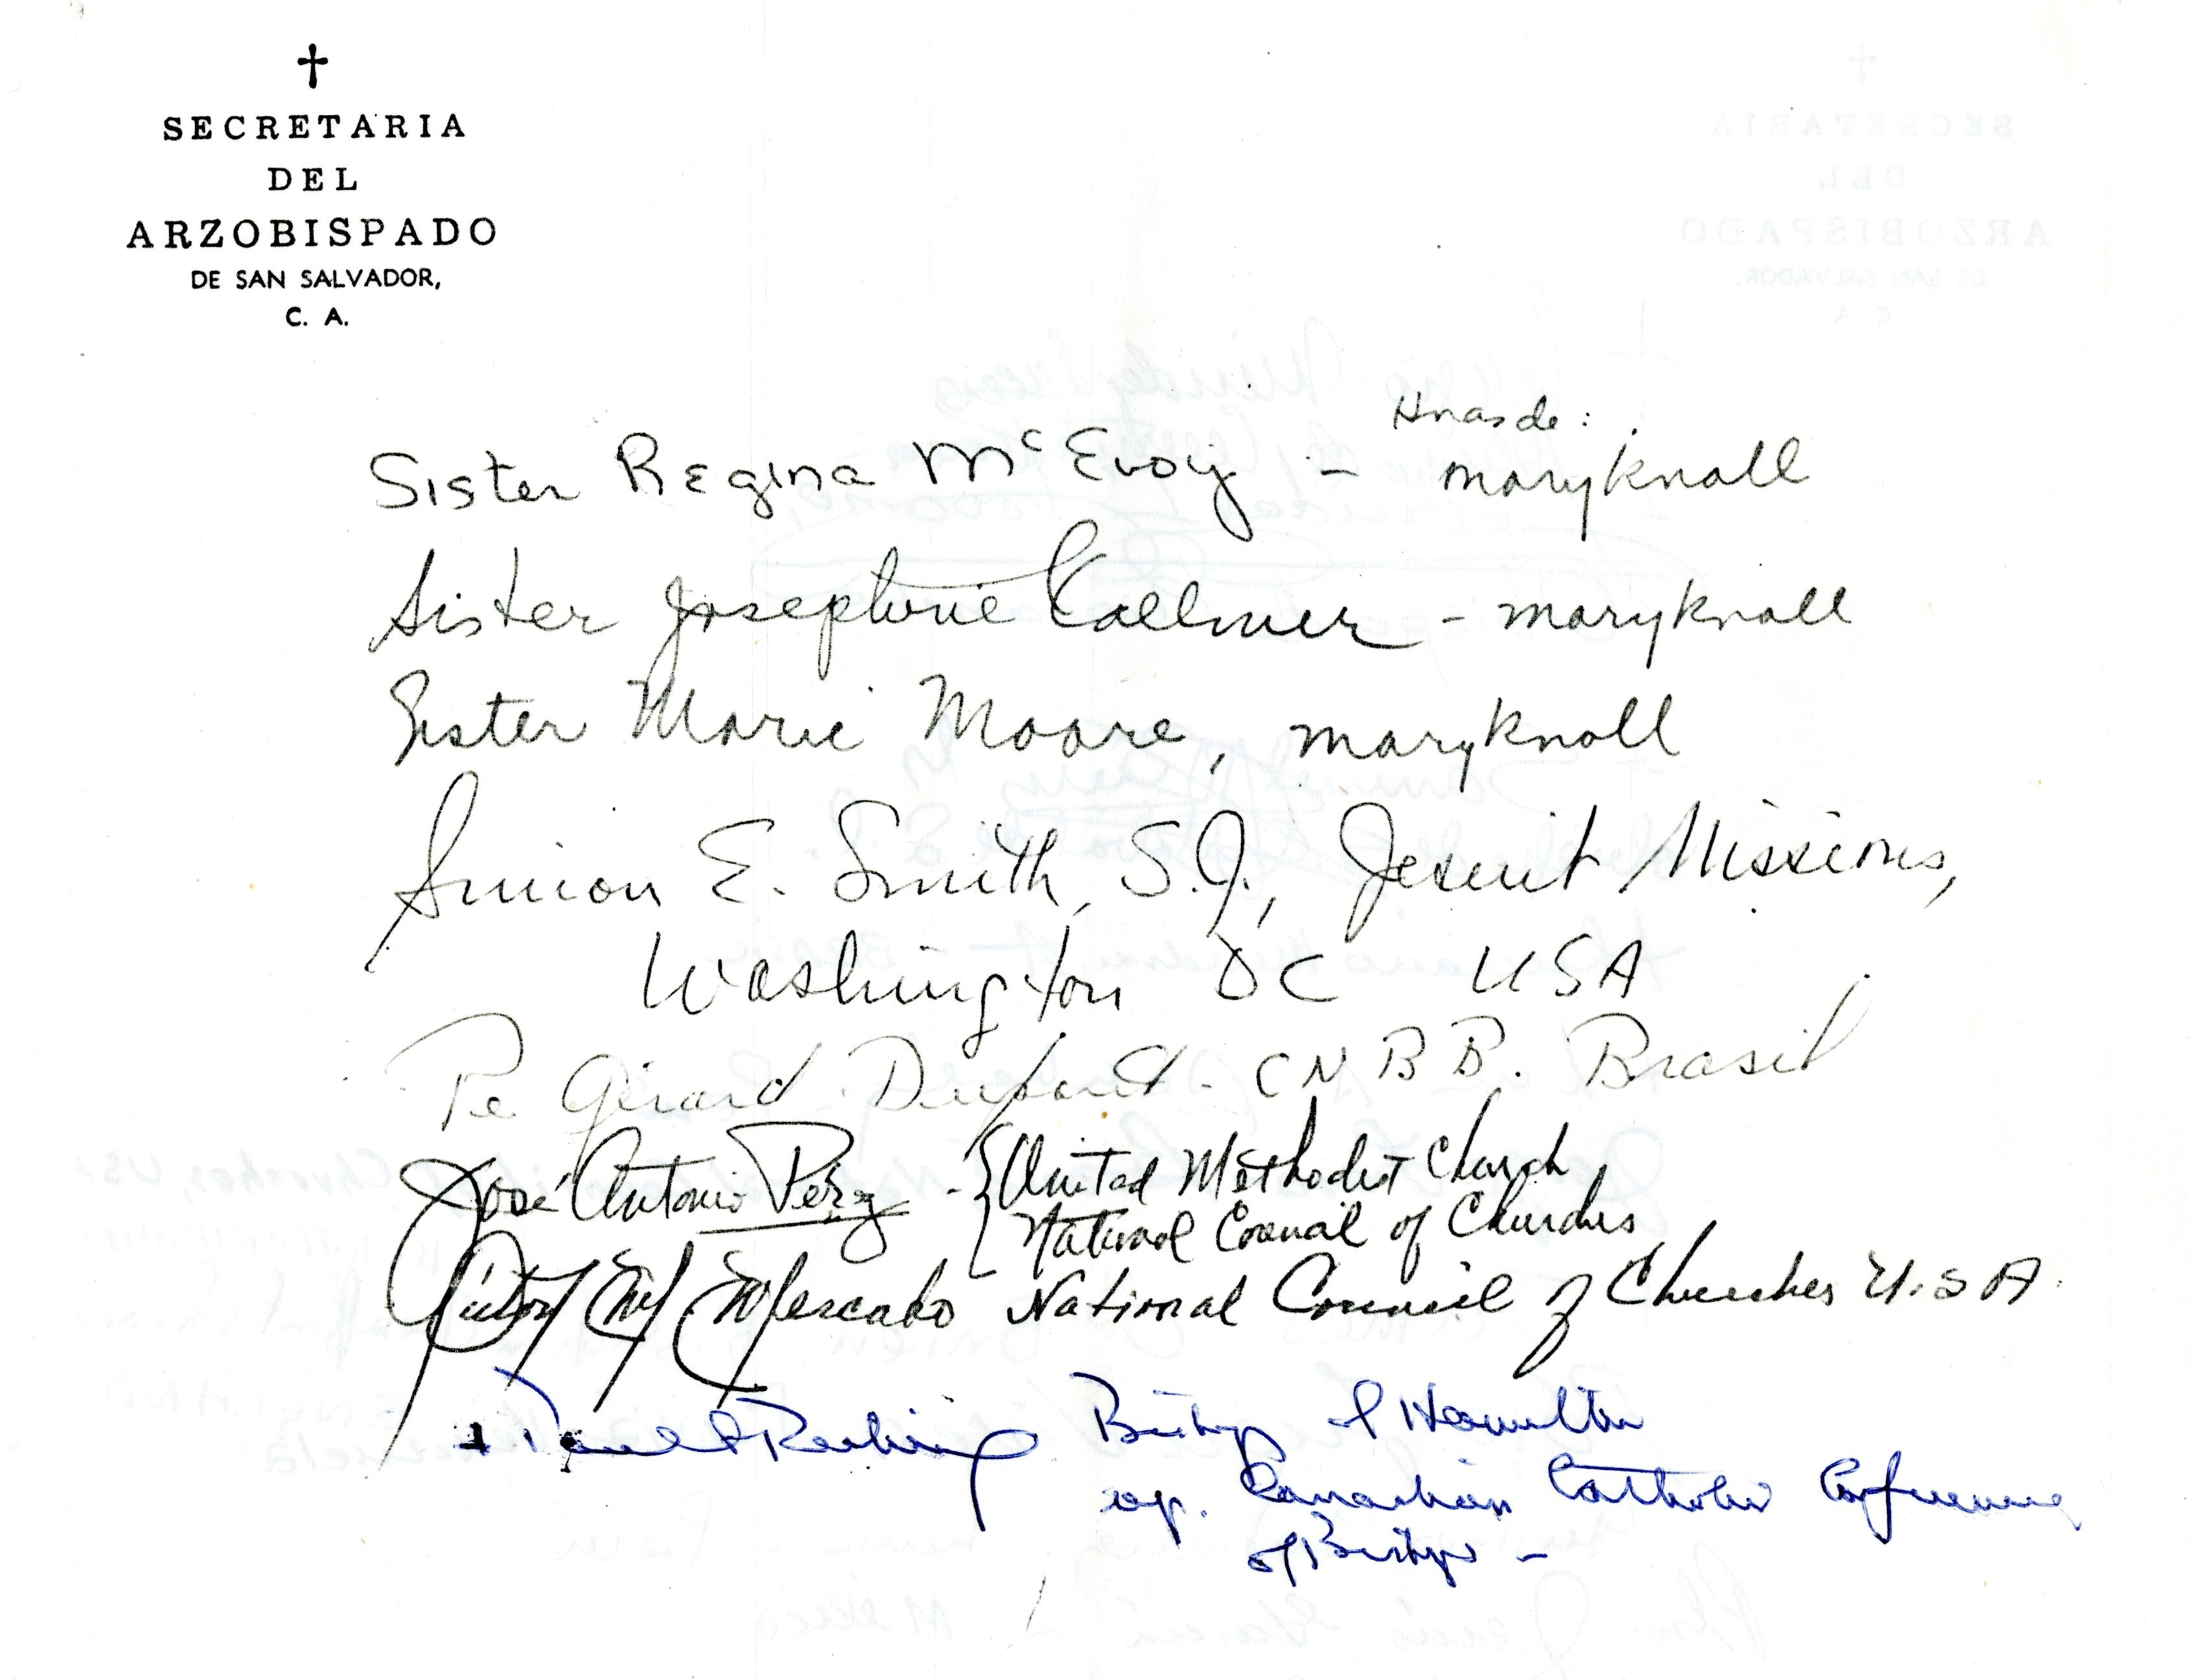 SECRETARIA
DEL
ARZOBISPADO
DE SAN SALVADOR,
C. A.
Hnas de:
Sister Regina McEvoy - Maryknoll
Sister Josephine - Maryknoll
Sister Marie Moore, Maryknoll
Simon E. Smith, S.J., Jesuit Missions,
Washington DC USA
Pe Gérard Dupont - CNBB. Brasil
José Antonio Pérez - United Methodist Church
National Council of Churches
Victor M. Mercado National Council of Churches U.S.A.
+ Bishop of Hamilton
rep. Canadian Catholic Conference
of Bishops -